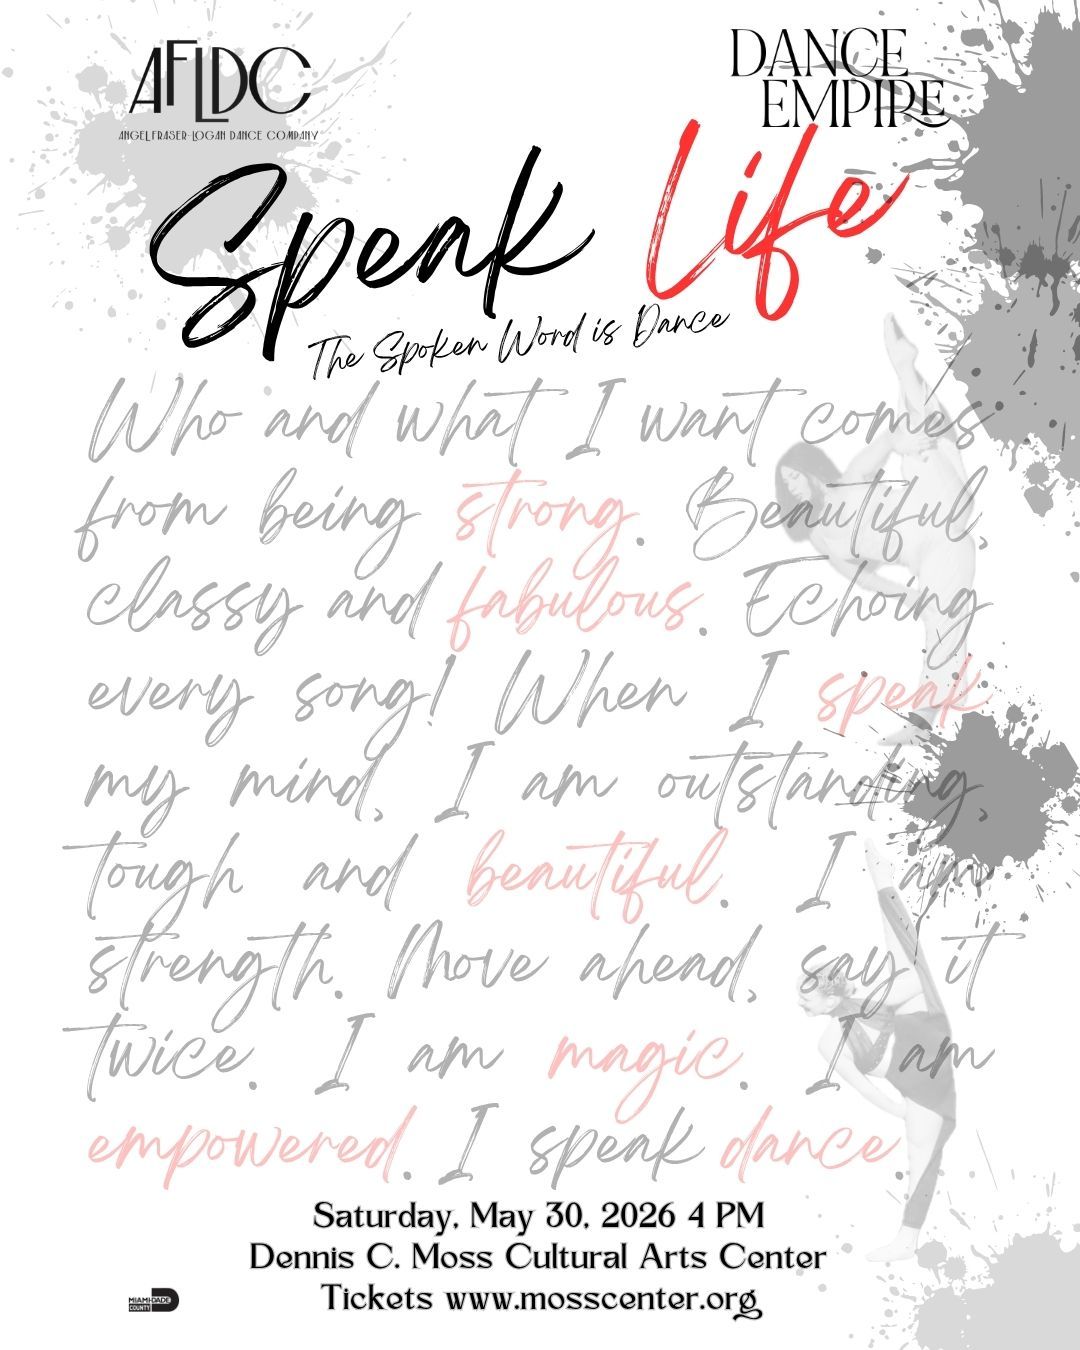 AFLDC
ANGEL FRASER-LOGAN DANCE COMPANY
DANCE
EMPIRE
Speak Life
The Spoken Word is Dance
Who and what I want comes
from being strong. Beautiful,
classy and fabulous. Echoing
every song! When I speak
my mind, I am outstanding,
tough and beautiful. I am
strength. Move ahead, say it
twice. I am magic. I am
empowered. I speak dance
Saturday, May 30, 2026 4 PM
Dennis C. Moss Cultural Arts Center
Tickets www.mosscenter.org
MIAMI-DADE
COUNTY